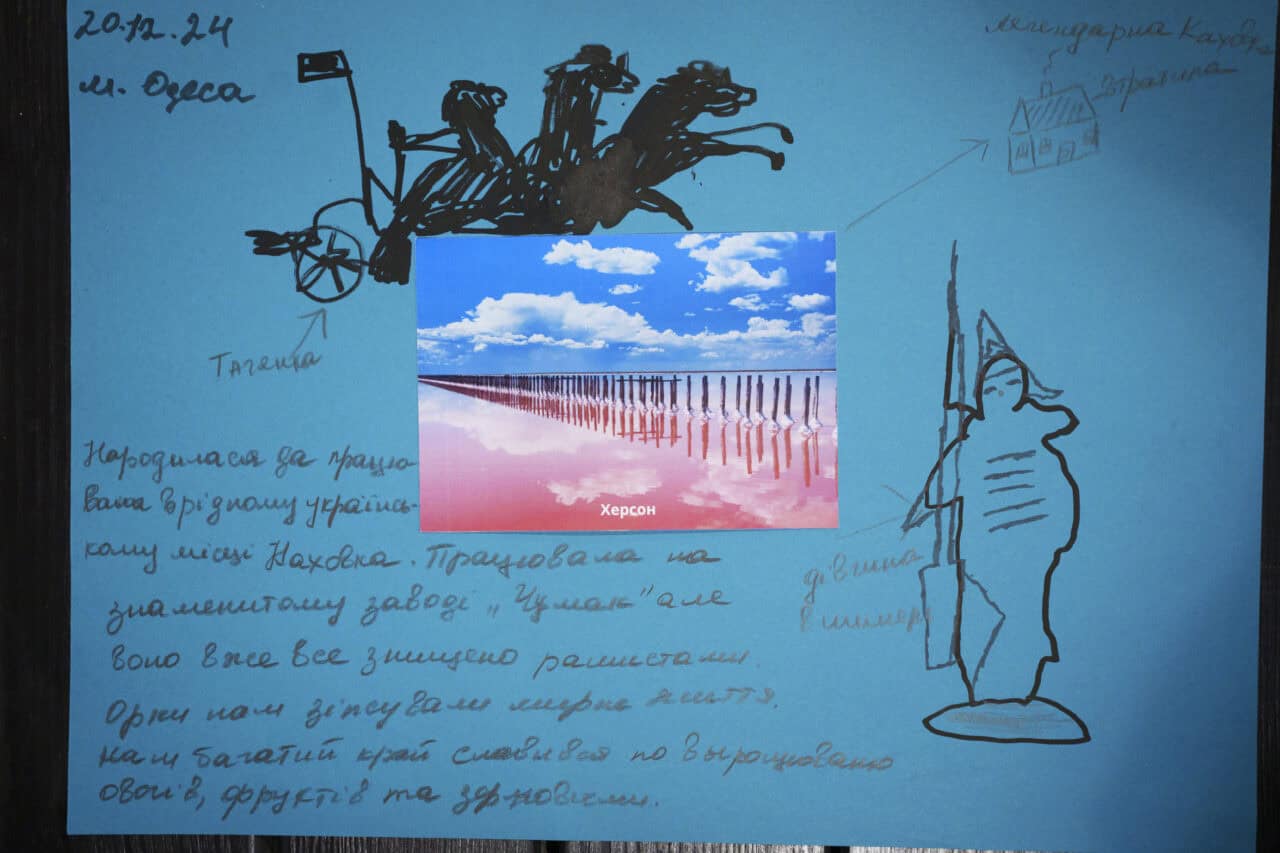 20.12.24
м. Одеса
легендарна Каховка
Втрачена
Тачанка
Херсон
Народилася да працю
вала в рідному українсь-
кому місці Каховка. Працювала на
знаменитому заводі „Чумак" але
воно вже все знищено рашистами.
Орки нам зіпсували мирне життя.
Наш багатий край славився по вырощюванню
овочів, фруктів та зерновими.
дівчина
в шинелі